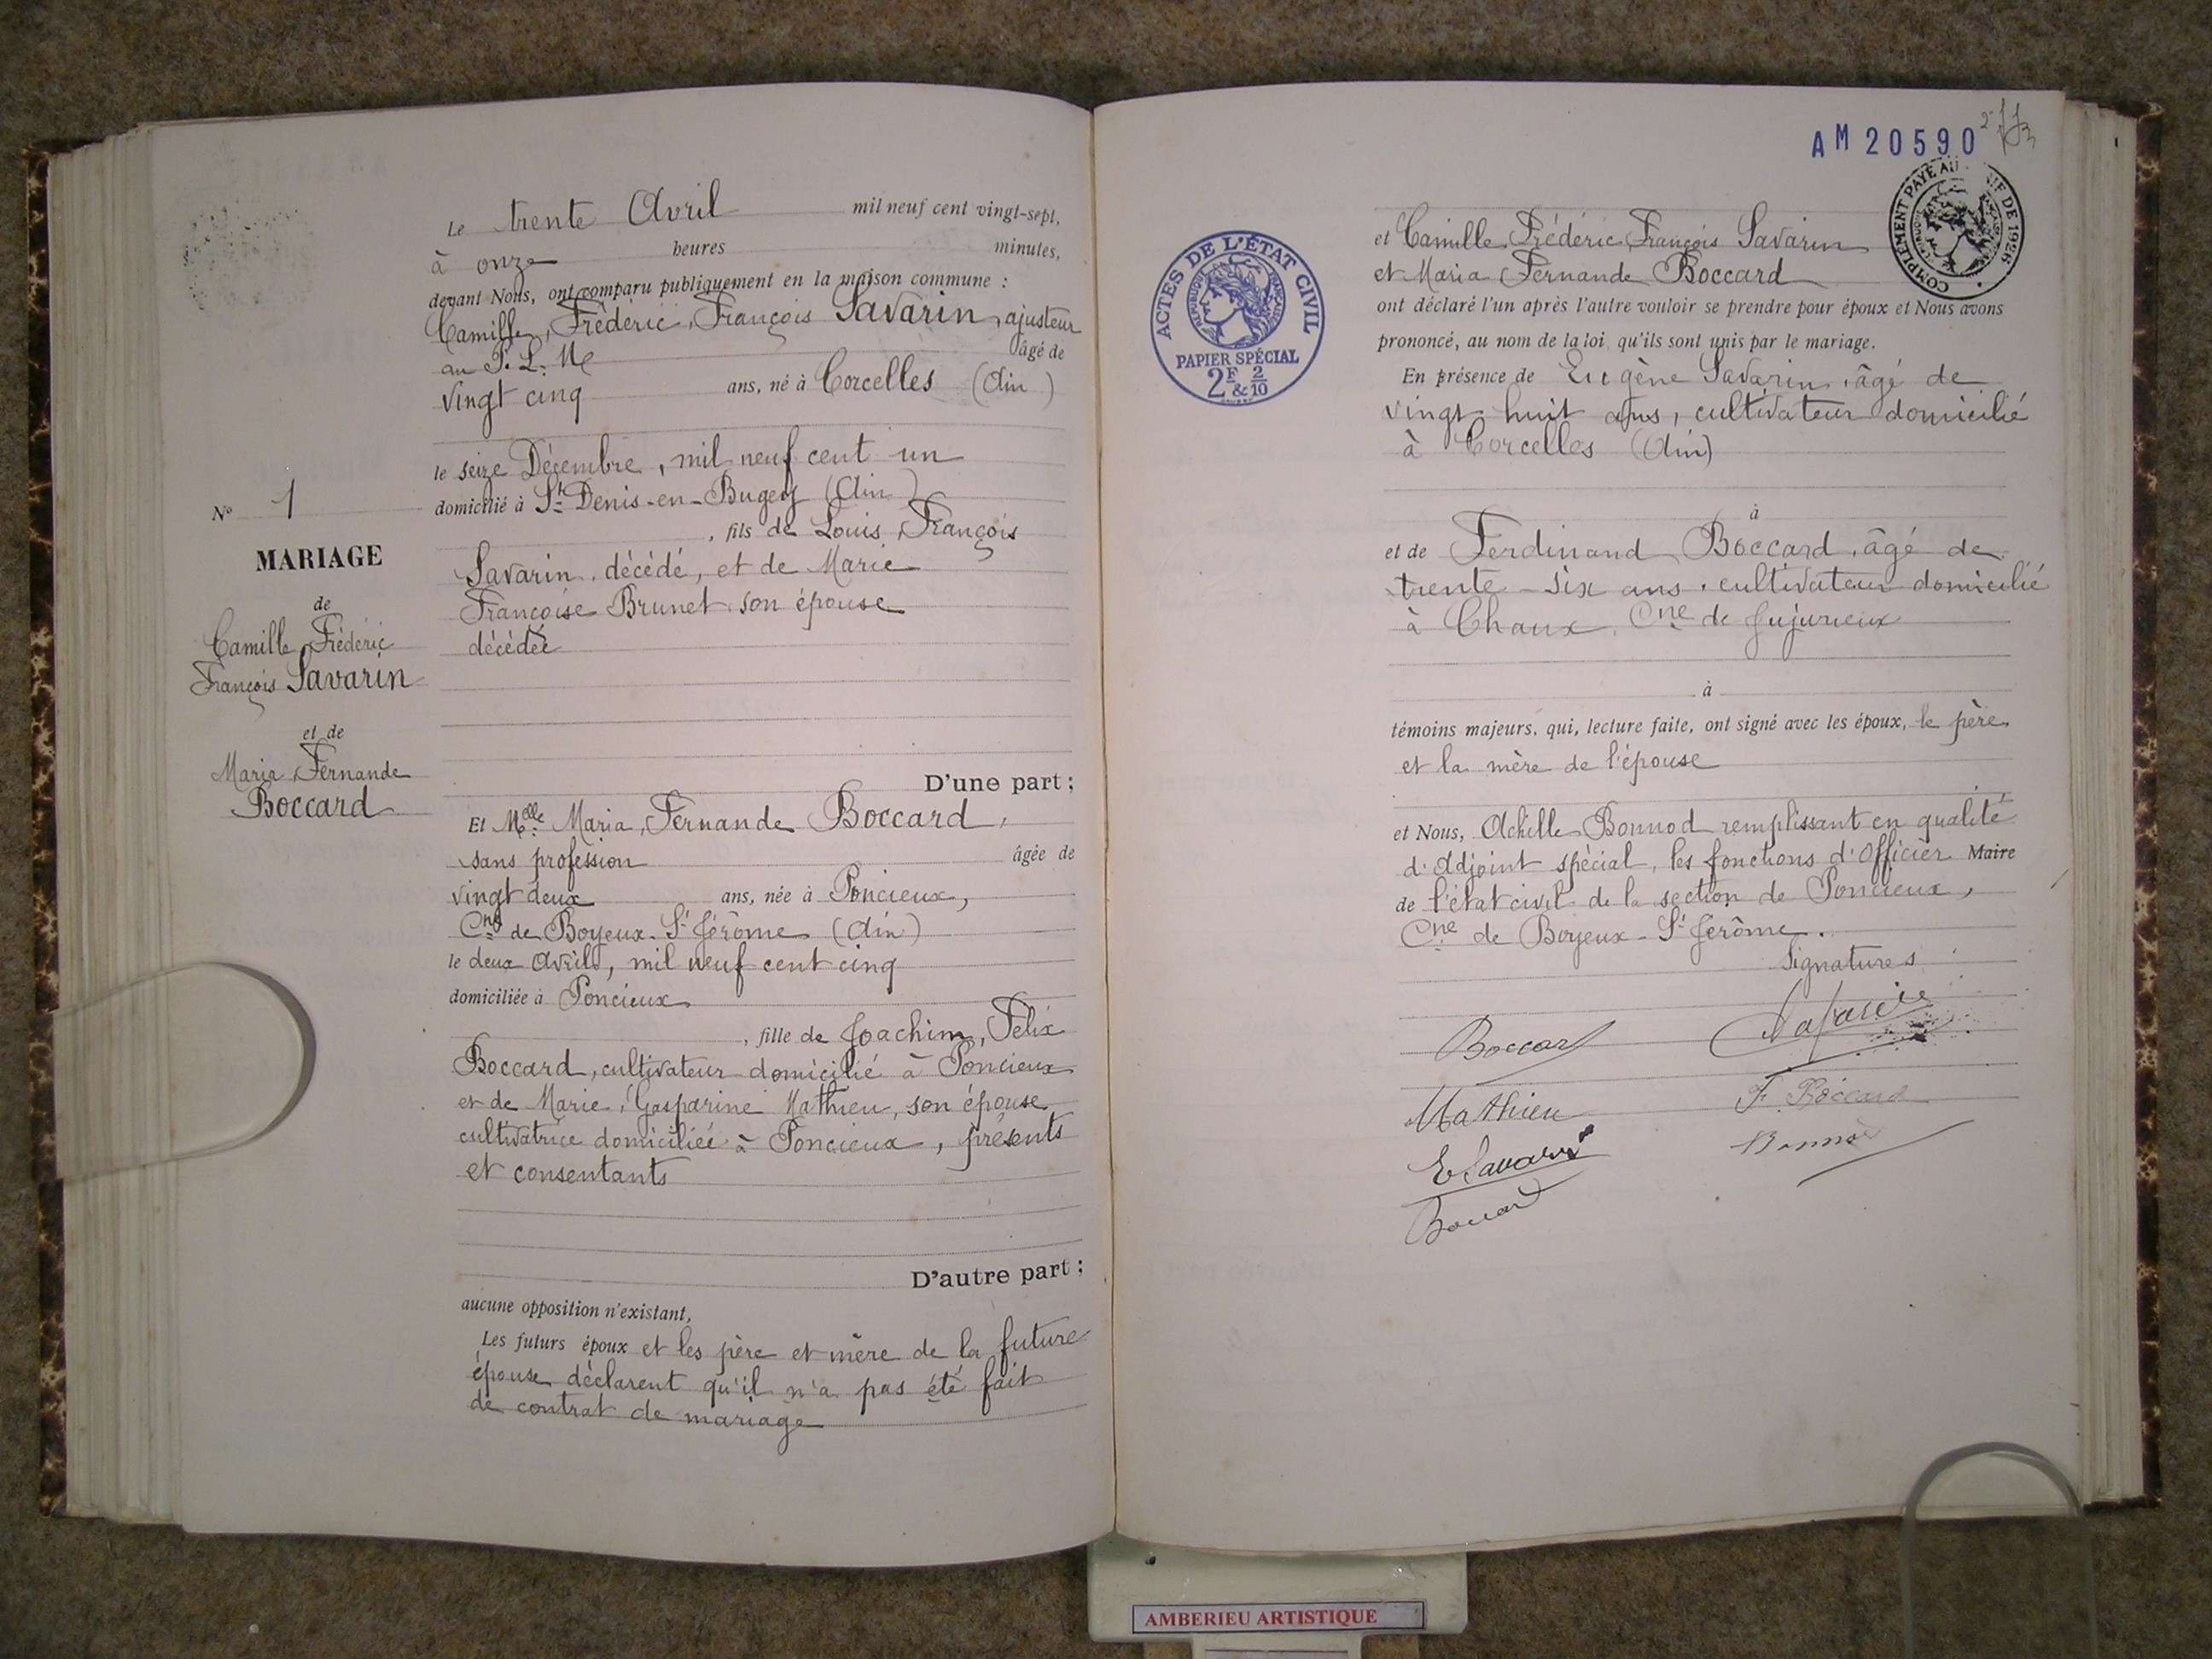 N° 1
MARIAGE
de
Camille, Frédéric
François Savarin
et de
Maria Fernande
Boccard
Le trente Avril mil neuf cent vingt-sept,
à onze heures minutes,
devant Nous, ont comparu publiquement en la maison commune :
Camille, Frédéric, François Savarin, ajusteur
au P. L. M. âgé de
vingt cinq ans, né à Corcelles (Ain)
le seize Décembre, mil neuf cent un
domicilié à St Denis-en-Bugey (Ain)
, fils de Louis, François
Savarin, décédé, et de Marie
Françoise Brunet son épouse
décédée
D'une part ;
Et Melle Maria, Fernande Boccard,
sans profession âgée de
vingt deux ans, née à Poncieux,
Cne de Boyeux-St Jérôme (Ain)
le deux Avril, mil neuf cent cinq
domiciliée à Poncieux
, fille de Joachim, Félix
Boccard, cultivateur domicilié à Poncieux
et de Marie, Gasparine Mathieu, son épouse
cultivatrice domiciliée à Poncieux, présents
et consentants
D'autre part ;
aucune opposition n'existant,
Les futurs époux et les père et mère de la future
épouse déclarent qu'il n'a pas été fait
de contrat de mariage
AM 20590
COMPLÉMENT PAYÉ AU DE 1926
ACTES DE L'ÉTAT CIVIL
RÉPUBLIQUE FRANÇAISE
PAPIER SPÉCIAL
2F & 2/10
et Camille Frédéric, François Savarin
et Maria Fernande Boccard
ont déclaré l'un après l'autre vouloir se prendre pour époux et Nous avons
prononcé, au nom de la loi, qu'ils sont unis par le mariage.
En présence de Eugène Savarin, âgé de
vingt-huit ans, cultivateur domicilié
à Corcelles (Ain)
à
et de Ferdinand Boccard, âgé de
trente-six ans, cultivateur domicilié
à Chaux, Cne de Jujurieux
à
témoins majeurs, qui, lecture faite, ont signé avec les époux, le père
et la mère de l'épouse
et Nous, Achille Bonnod remplissant en qualité
d'Adjoint spécial, les fonctions d'Officier Maire
de l'état civil de la section de Poncieux,
Cne de Boyeux-St Jérôme.
Signatures
Boccard
Mathieu F. Boccard
E Savarin Bonnod
Boccard
AMBERIEU ARTISTIQUE